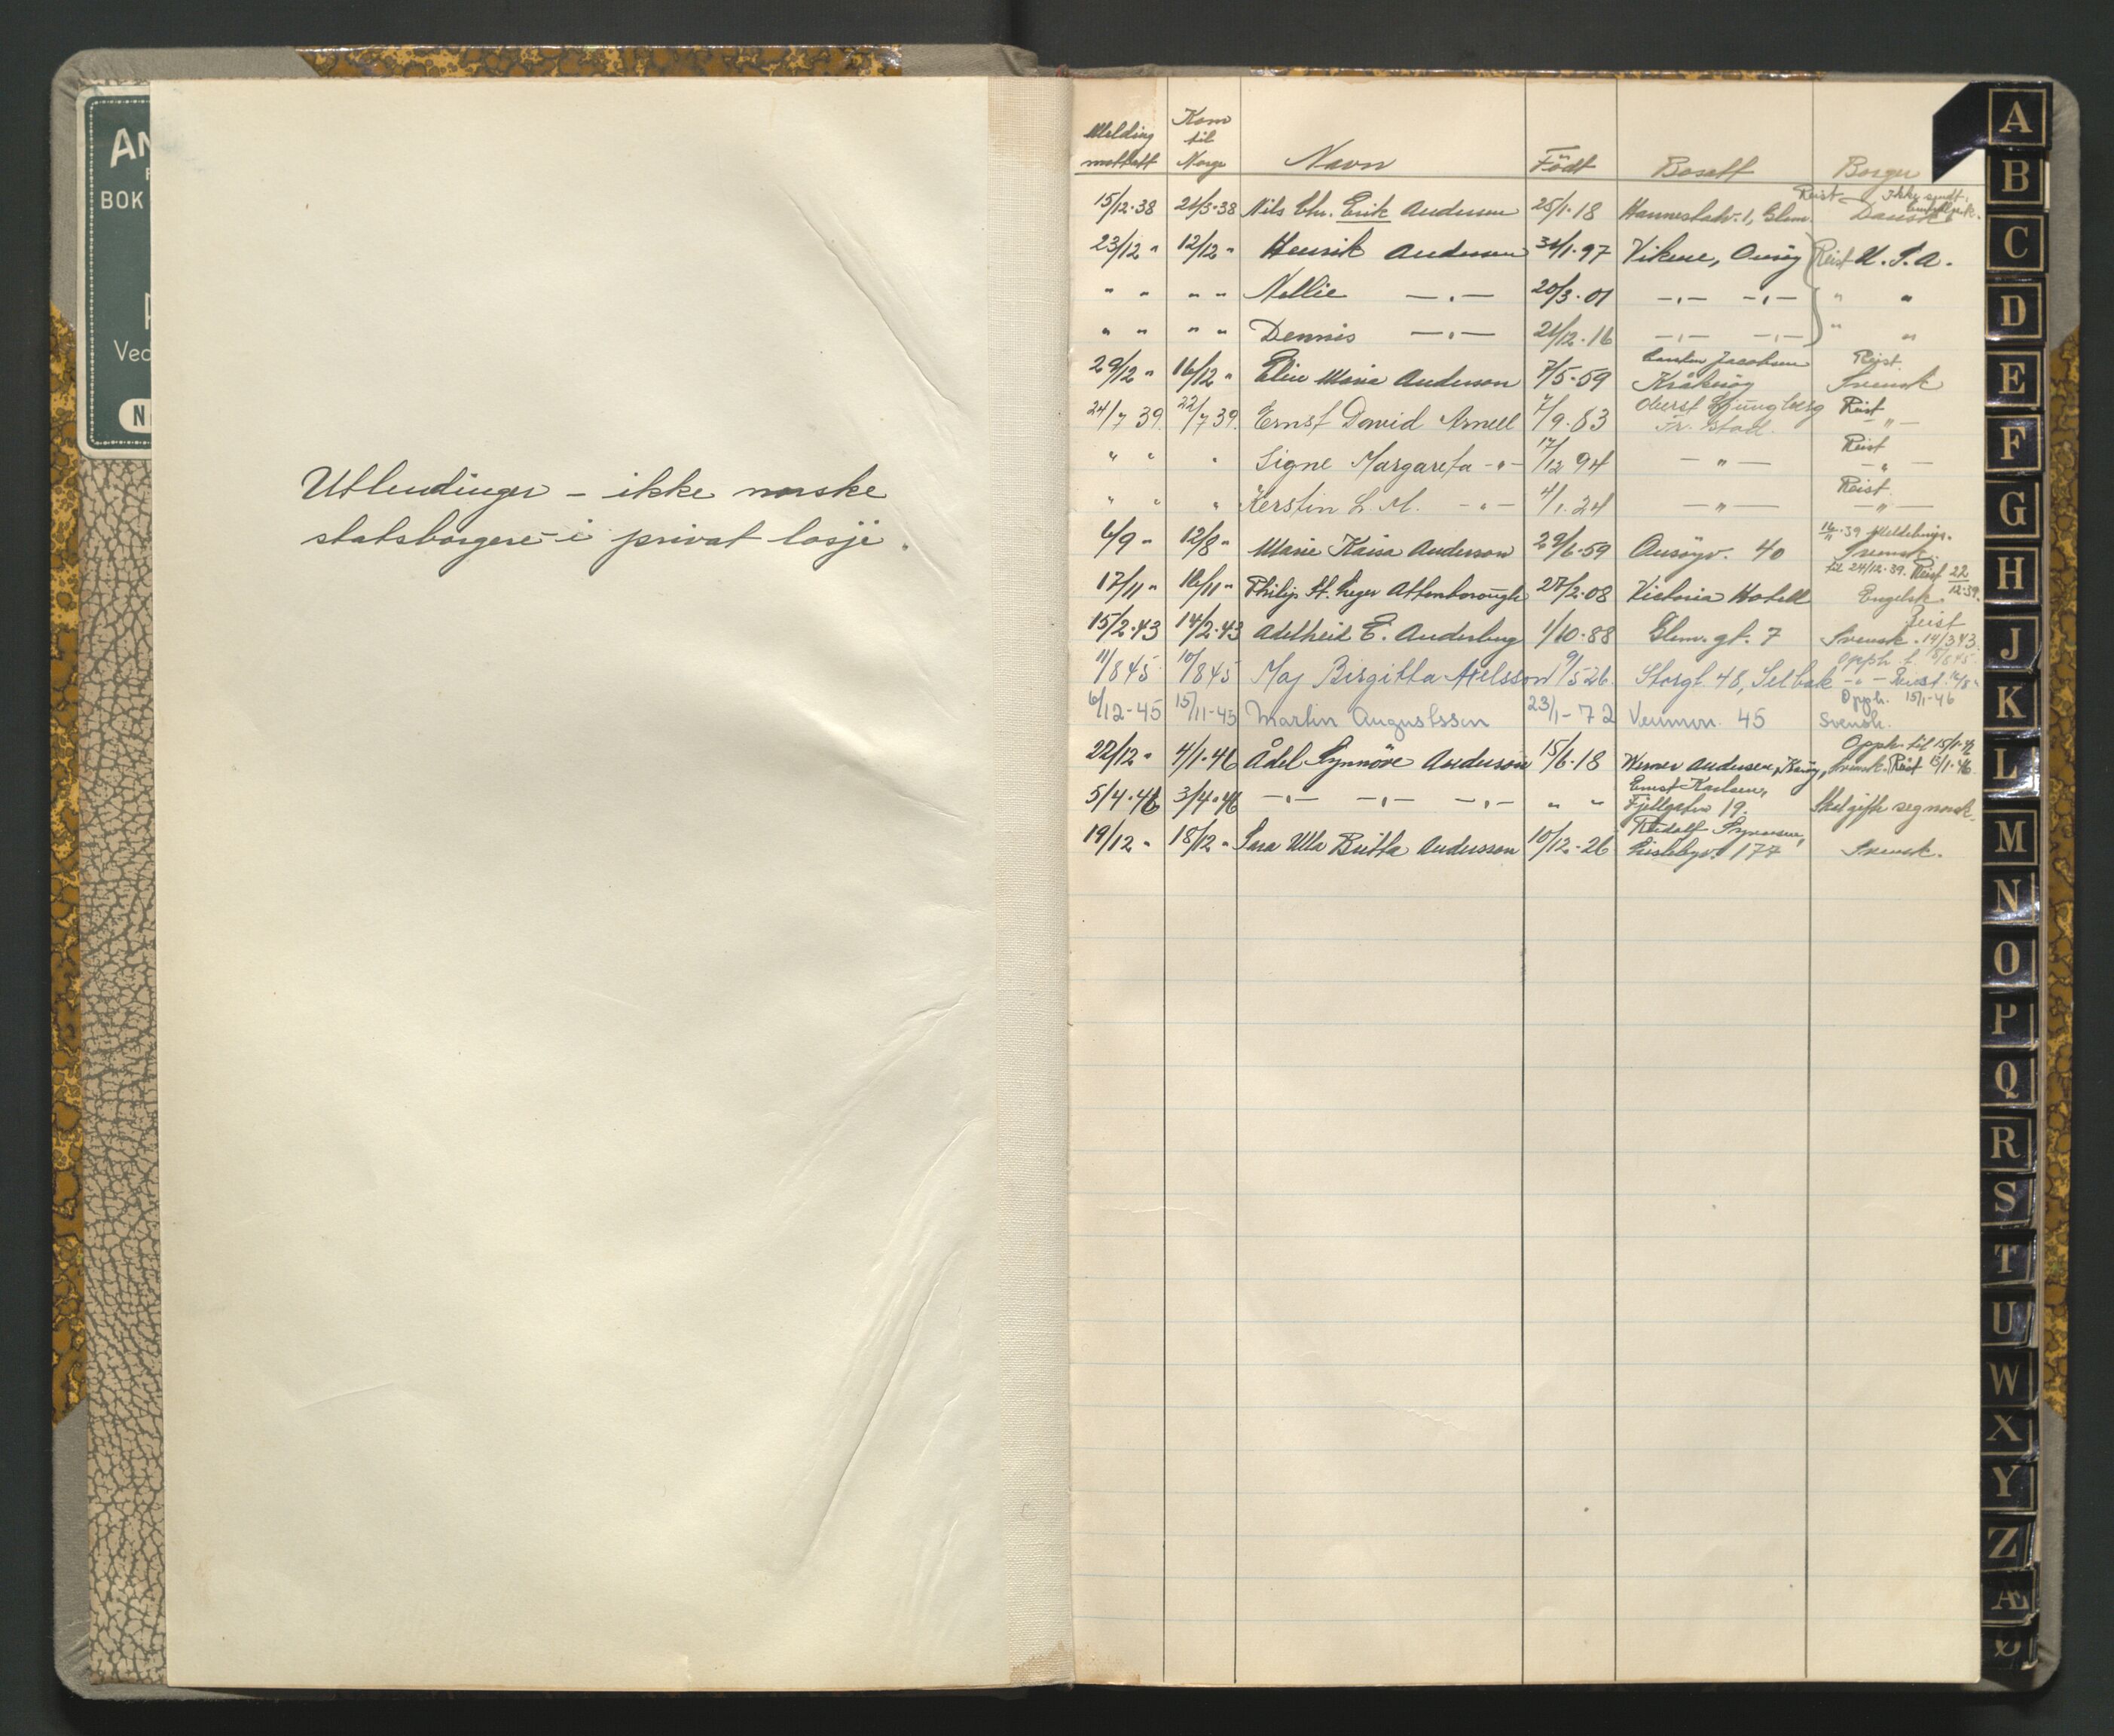 AN
BOK
Ved
N
Utlendinger – ikke norske
statsborgere i privat losje.
Melding mottatt Kom til Norge Navn Födt Bosatt Borger
15/12-38 21/3-38 Nils Chr. Erik Andersen 25/1-18 Hannestadv. 1, Glem. Reist Dansk
23/12 " 12/12 " Henrik Andersen 31/1-97 Vikene, Onsöy Reist U.S.A.
" " " " Nellie —"— 20/3-01 —"— —"— " "
" " " " Dennis —"— 21/12-16 —"— —"— " "
29/12 " 16/12 " Elise Marie Anderson 7/5-59 Carsten Jacobsen Kråkeröy Reist. Svensk
24/7 39. 22/7 39. Ernst David Arnell 7/9.83 Oberst Ljungberg Fr.stad. Reist —"—
" " " Signe Margareta —"— 17/12 94 —"— Reist —"—
" " " Kerstin L. M. —"— 4/1.24 —"— Reist. —"—
6/9 " 12/8 " Marie Kaisa Anderson 29/6-59 Onsöyv. 40 Svensk.
17/11 " 16/11 " Philip St. Leger Attenborough 27/2-08 Victoria Hotell til 24/12-39. Reist 22/12-39. Engelsk.
15/2-43 14/2-43 Adelheid E. Anderberg 1/10-88 Glem.gt. 7 Svensk. Reist 14/3 43.
11/8 45 10/8 45 Maj Birgitta Axelsson 9/5 26. Storgt. 48, Selbak Opph. t. 15/8 45. —"— Reist.
6/12-45 15/11-45 Martin Augustsson 23/1-72 Veumvn. 45 Opph. 15/1-46 Svensk.
22/12 " 4/1-46 Ådel Synnöve Anderson 15/6-18 Werner Andersen, Kröy, Opph. til 15/1-46 Svensk. Reist 15/1-46.
5/4-46 3/4-46 —"— —"— —"— " " Ernst Karlsen, Fjellgaten 19. Skal gifte seg norsk.
19/12 " 18/12 " Sara Ulla Britta Andersson 10/12-26 Rudolf Lislebyv. 177 Svensk.
A
B
C
D
E
F
G
H
J
K
L
M
N
O
P
Q
R
S
T
U
W
X
Y
Z
Æ
Ø